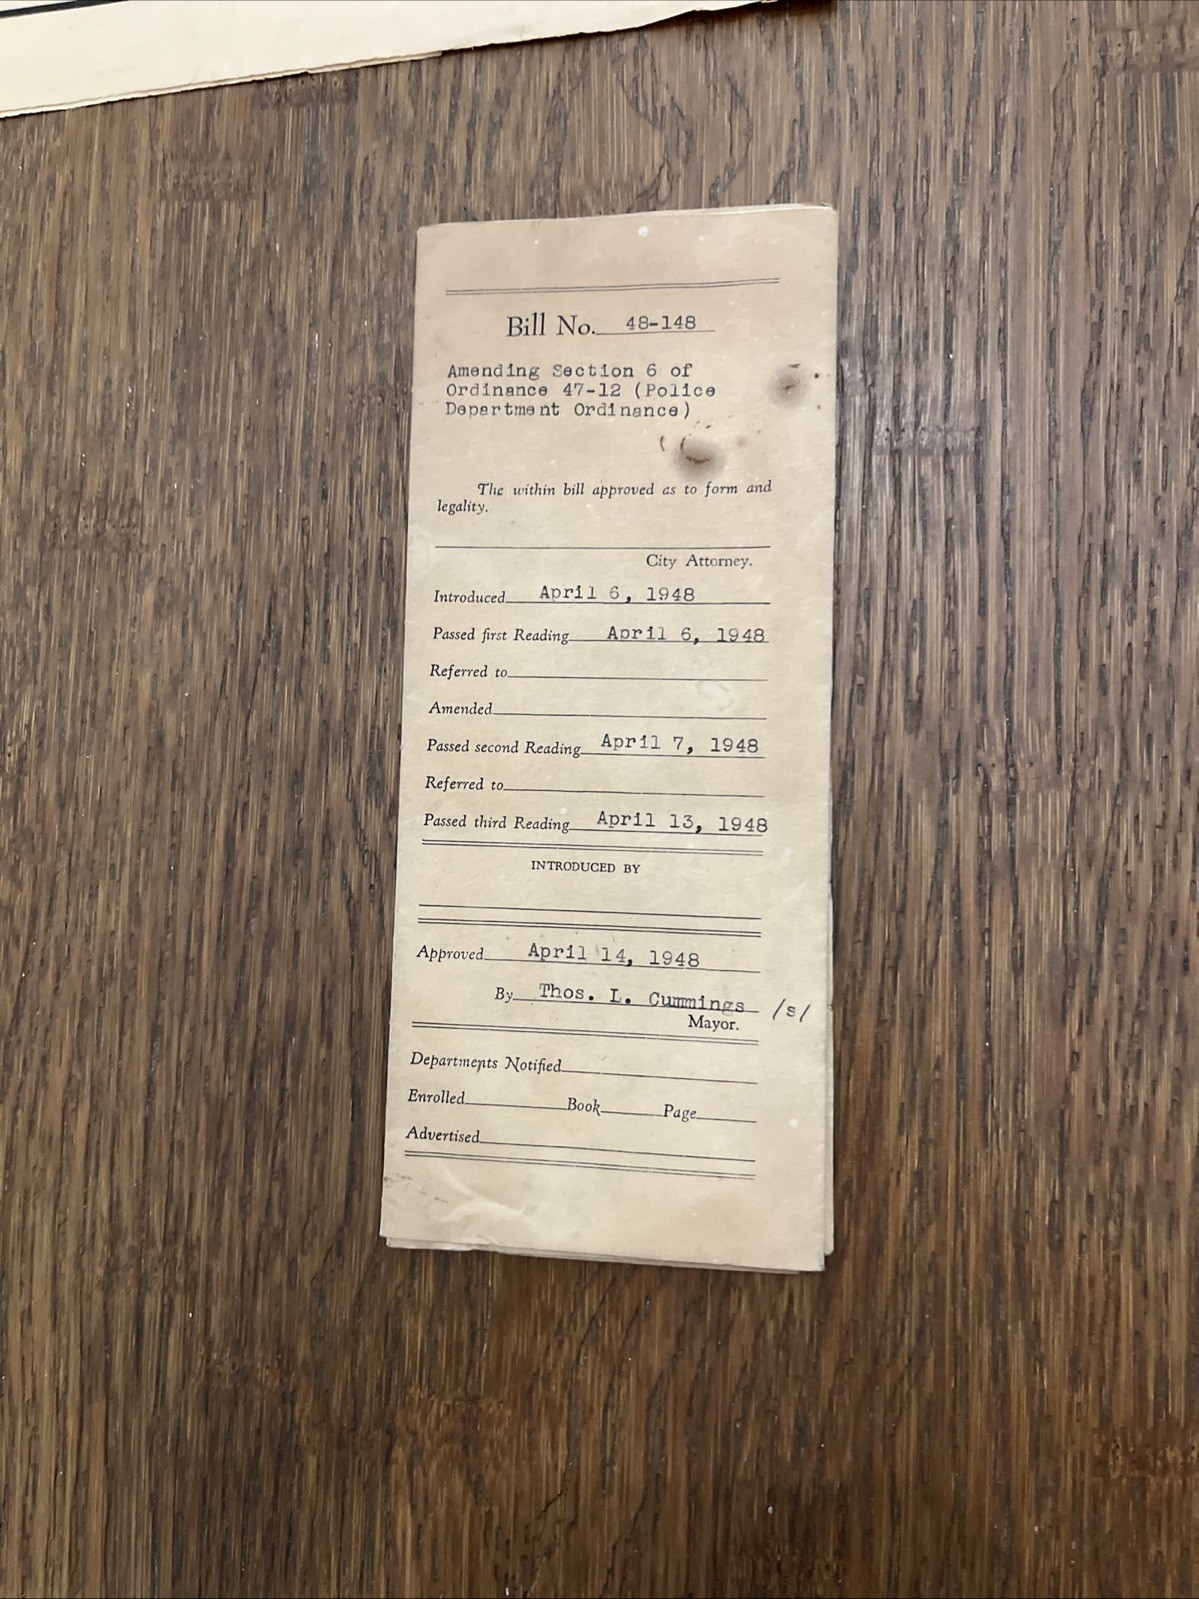 Bill No. 48-148
Amending Section 6 of
Ordinance 47-12 (Police
Department Ordinance)
The within bill approved as to form and
legality.
City Attorney.
Introduced April 6, 1948
Passed first Reading April 6, 1948
Referred to
Amended
Passed second Reading April 7, 1948
Referred to
Passed third Reading April 13, 1948
INTRODUCED BY
Approved April 14, 1948
By Thos. L. Cummings /s/
Mayor.
Departments Notified
Enrolled Book Page
Advertised